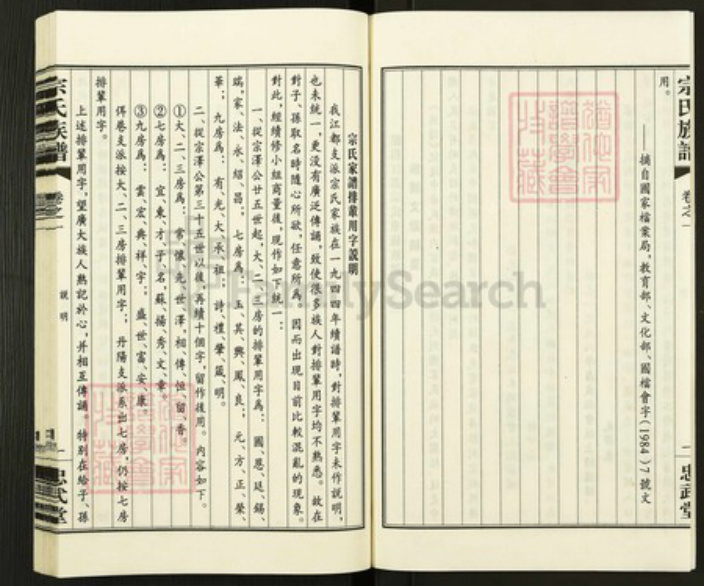 宗氏族譜
卷之一
忠武堂
用。
——摘自國家檔案局、教育部、文化部、國檔會字(1984)7號文
宗氏家譜排輩用字説明
我江都支派宗氏家族在一九四四年續譜時，對排輩用字未作説明，
也未統一，更没有廣泛傳誦，致使很多族人對排輩用字均不熟悉。故在
對子、孫取名時隨心所欲，任意所為，因而出現目前比較混亂的現象。
對此，經續修小組商量後，現作如下統一：
一、從宗澤公廿五世起，大、二、三房的排輩用字為：國、恩、廷、錫、
瑞、家、法、永、紹、昌；七房為：玉、其、興、鳳、良；元、方、正、榮、
華；九房為：有、光、大、承、祖；詩、禮、肇、箴、明。
二、從宗澤公第三十五世以後，再續十個字，留作後用。内容如下。
①大、二、三房為：常、懷、先、世、澤，相、傳、恒、留、香。
②七房為：宜、東、才、子、名，蘇、揚、秀、文、章。
③九房為：雲、宏、典、祥、宇；盛、世、富、安、康。
支派按大、二、三房排輩用字；丹陽支派系出七房，仍按七房
排輩用字。
上述排輩用字，望廣大族人熟記於心，并相互傳誦。特别在給子、孫
宗氏族譜
卷之一
説明
一
忠武堂
FamilySearch